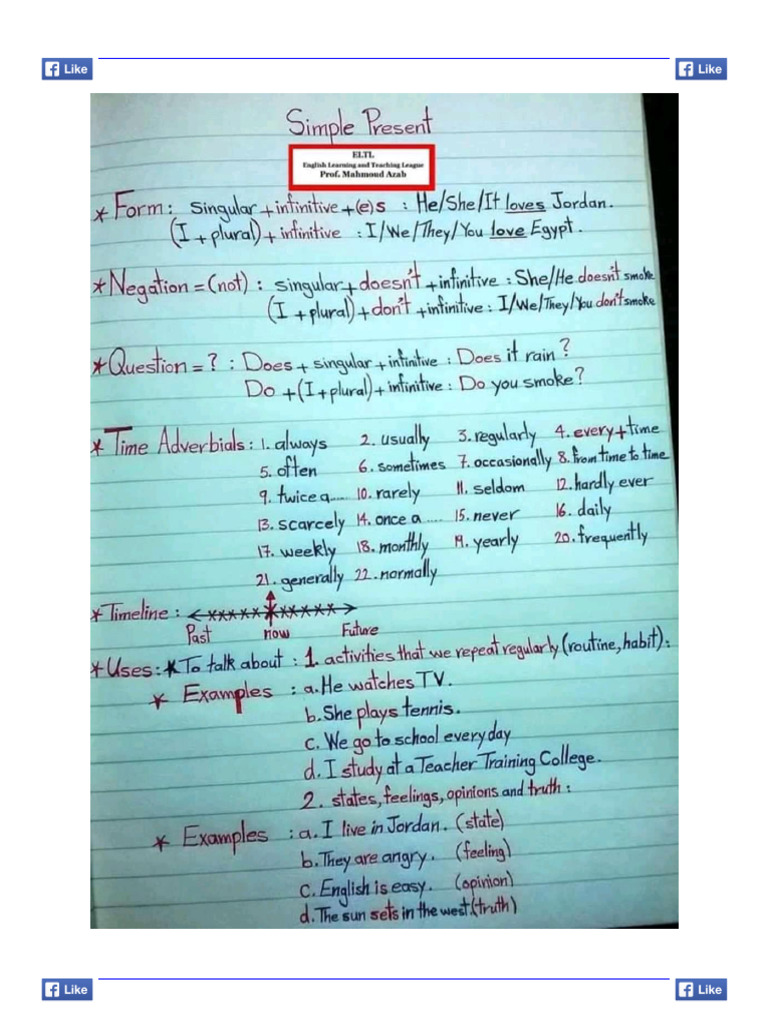 Like
Like
Simple Present
ELTL
English Learning and Teaching League
Prof. Mahmoud Azab
* Form: singular + infinitive + (e)s : He/She/It loves Jordan.
(I + plural) + infinitive : I/We/They/You love Egypt.
* Negation = (not) : singular + doesn't + infinitive : She/He doesn't smoke
(I + plural) + don't + infinitive : I/We/They/You don't smoke
* Question = ? : Does + singular + infinitive : Does it rain?
Do + (I + plural) + infinitive : Do you smoke?
* Time Adverbials : 1. always 2. usually 3. regularly 4. every + time
5. often 6. sometimes 7. occasionally 8. from time to time
9. twice a ..... 10. rarely 11. seldom 12. hardly ever
13. scarcely 14. once a ..... 15. never 16. daily
17. weekly 18. monthly 19. yearly 20. frequently
21. generally 22. normally
* Timeline :
Past now Future
* Uses : * To talk about : 1. activities that we repeat regularly (routine, habit) :
* Examples : a. He watches TV.
b. She plays tennis.
c. We go to school every day
d. I study at a Teacher Training College.
2. states, feelings, opinions and truth :
* Examples : a. I live in Jordan. (state)
b. They are angry. (feeling)
c. English is easy. (opinion)
d. The sun sets in the west. (truth)
Like
Like